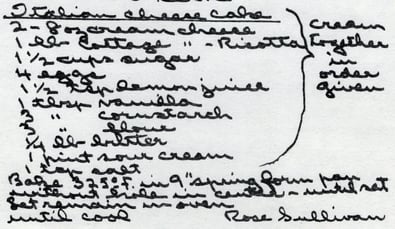 Italian cheese cake
2 - 8 oz cream cheese
1 lb Cottage " - Ricotta
1 1/2 cups sugar
4 eggs
1 1/2 tsp lemon juice
1 tbsp vanilla
3 " cornstarch
3 " flour
1/4 lb butter
1 pint sour cream
1 tsp salt
cream
together
in
order
given
Bake 325° in 9" spring form pan
without hole in center - until set
Let remain in oven
until cool Rose Sullivan